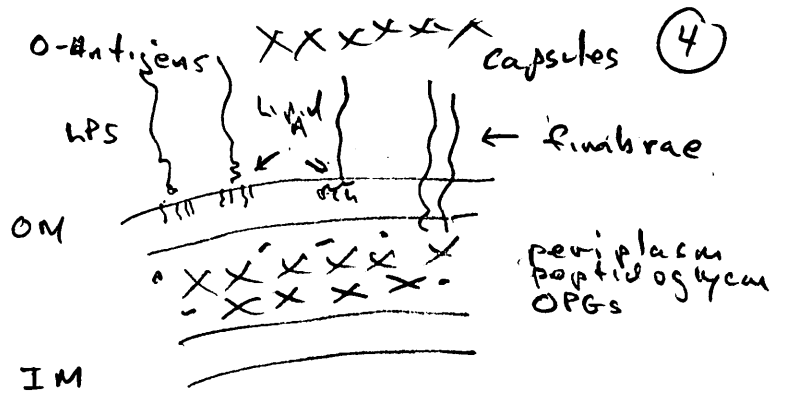 O-Antigens
capsules
4
LPS
Lipid
A
← fimbrae
OM
periplasm
peptidoglycan
OPGs
IM